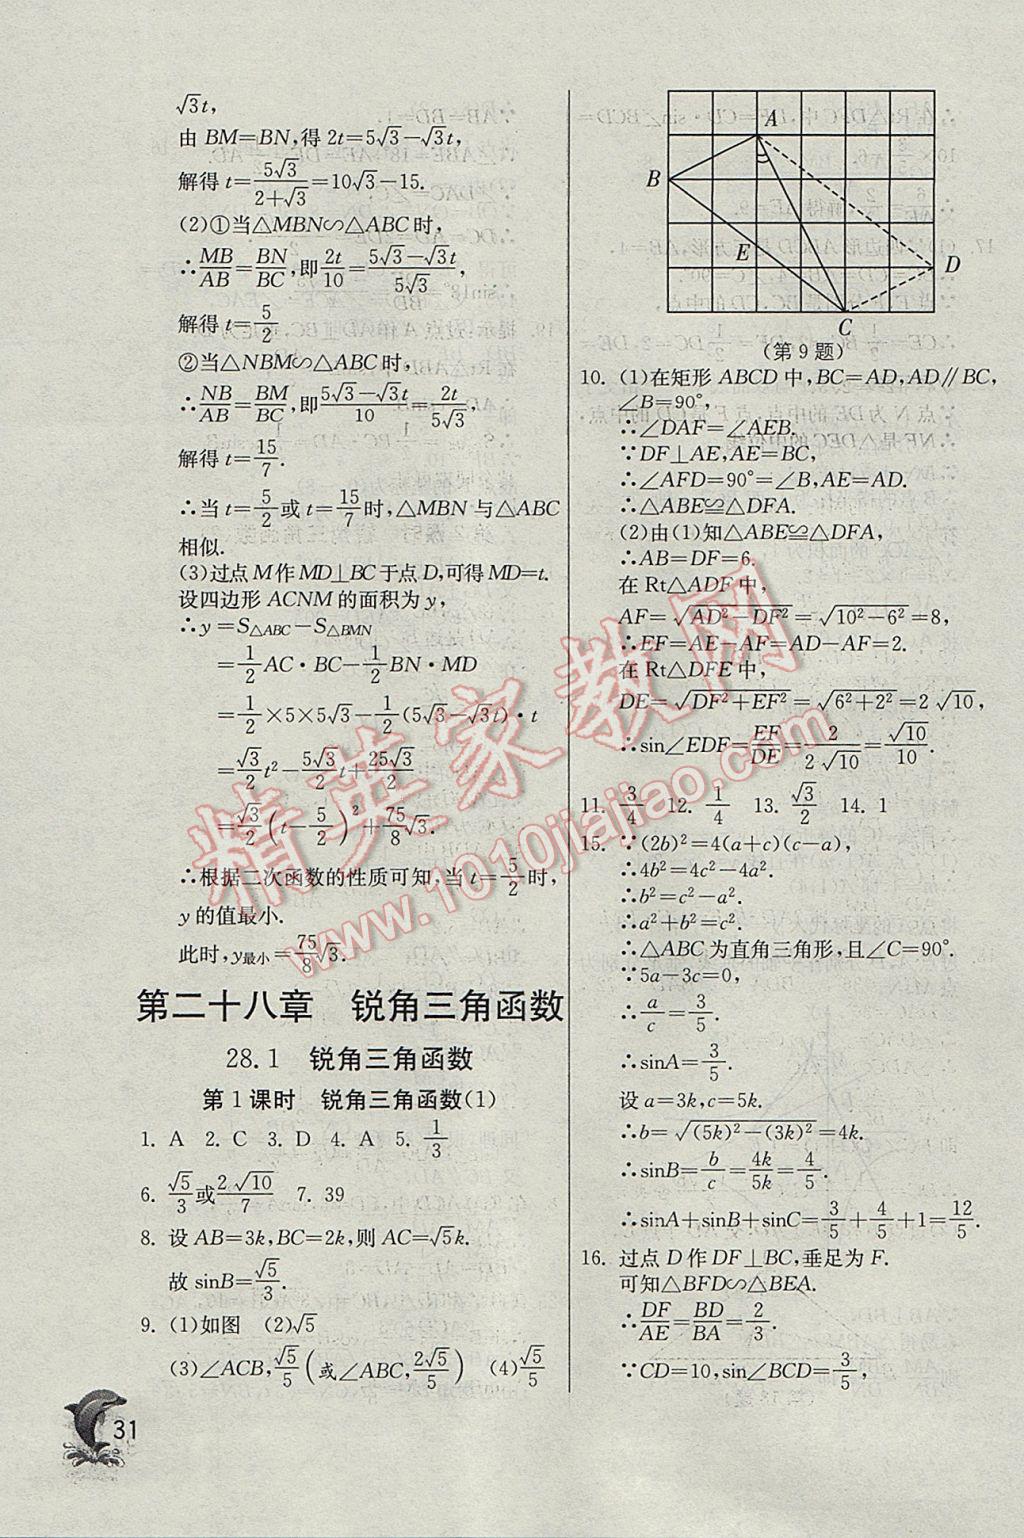 √3t,
由 BM=BN,得 2t=5√3−√3t,
解得 t=5√3/(2+√3)=10√3−15.
(2)①当△MBN∽△ABC时,
∴MB/AB=BN/BC,即2t/10=(5√3−√3t)/5√3,
解得 t=5/2.
②当△NBM∽△ABC时,
∴NB/AB=BM/BC,即(5√3−√3t)/10=2t/5√3,
解得 t=15/7.
∴当 t=5/2或 t=15/7时,△MBN 与△ABC
相似.
(3)过点 M 作 MD⊥BC 于点 D,可得 MD=t.
设四边形 ACNM 的面积为 y,
∴y=S△ABC−S△BMN
=1/2 AC·BC−1/2 BN·MD
=1/2×5×5√3−1/2(5√3−√3t)·t
=√3/2 t²−5√3/2 t+25√3/2
=√3/2(t−5/2)²+75/8√3.
∴根据二次函数的性质可知,当 t=5/2时,
y 的值最小.
此时,y最小=75/8√3.
第二十八章 锐角三角函数
28.1 锐角三角函数
第1课时 锐角三角函数(1)
1. A 2. C 3. D 4. A 5. 1/3
6. √5/3或2√10/7 7. 39
8. 设 AB=3k,BC=2k,则 AC=√5k.
故 sinB=√5/3.
9. (1)如图 (2)√5
(3)∠ACB,√5/5(或∠ABC,2√5/5) (4)√5/5
31
A
B
E
D
C
(第9题)
10. (1)在矩形 ABCD 中,BC=AD,AD∥BC,
∠B=90°,
∴∠DAF=∠AEB.
∵DF⊥AE,AE=BC,
∴∠AFD=90°=∠B,AE=AD.
∴△ABE≌△DFA.
(2)由(1)知△ABE≌△DFA,
∴AB=DF=6.
在 Rt△ADF 中,
AF=√(AD²−DF²)=√(10²−6²)=8,
∴EF=AE−AF=AD−AF=2.
在 Rt△DFE 中,
DE=√(DF²+EF²)=√(6²+2²)=2√10,
∴sin∠EDF=EF/DE=2/(2√10)=√10/10.
11. 3/4 12. 1/4 13. √3/2 14. 1
15. ∵(2b)²=4(a+c)(c−a),
∴4b²=4c²−4a².
∴b²=c²−a².
∴a²+b²=c².
∴△ABC 为直角三角形,且∠C=90°.
∵5a−3c=0,
∴a/c=3/5.
∴sinA=3/5.
设 a=3k,c=5k.
∴b=√((5k)²−(3k)²)=4k.
∴sinB=b/c=4k/5k=4/5.
∴sinA+sinB+sinC=3/5+4/5+1=12/5.
16. 过点 D 作 DF⊥BC,垂足为 F.
可知△BFD∽△BEA.
∴DF/AE=BD/BA=2/3.
∵CD=10,sin∠BCD=3/5,
精英家教网
www.1010jiajiao.com